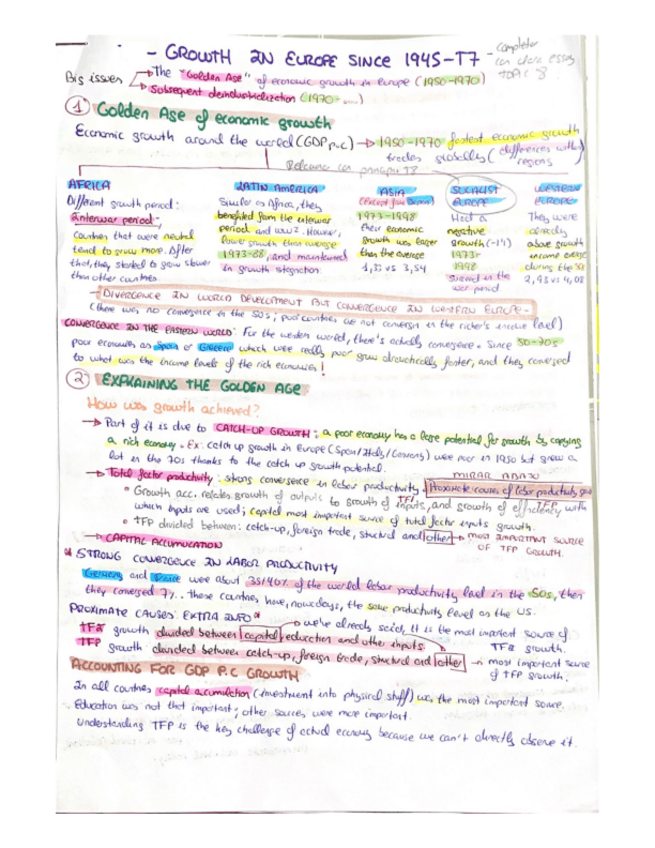 - GROWTH IN EUROPE SINCE 1945-T7 -
Big issues → The "Golden Age" of economic growth in Europe (1950-1970)
→ Subsequent deindustrialization (1970- ...)
① Golden Age of economic growth
Economic growth around the world (GDP p.c) → 1950-1970 fastest economic growth
trends globally (differences within regions
AFRICA
Different growth period:
Interwar period:
countries that were neutral
tend to grow more. After
that, they started to grow slower
than other countries
LATIN AMERICA
Similar as Africa, they
benefited from the interwar
period and ww2. However,
lower growth than average
1973-98, and maintained
in growth stagnation.
ASIA
(Except for Japan)
1973-1998
their economic
growth was larger
than the average
1,33 vs 3,54
SOCIALIST
EUROPE
Had a
negative
growth (-1'1)
1973-
1998
in the
war period
WESTERN
EUROPE
They were
already
above growth
income average
during the 50s
2,93 vs 4,08
- DIVERGENCE IN WORLD DEVELOPMENT BUT CONVERGENCE IN WESTERN EUROPE -
(there was no convergence in the 50s; poor countries are not converging in the richer's income level)
CONVERGENCE IN THE EASTERN WORLD: For the western world, there's actually convergence. Since 50-70s
poor economies as Spain or Greece which were really poor grew drastically faster, and they converged
to what was the income levels of the rich economies!
② EXPLAINING THE GOLDEN AGE
How was growth achieved?
→ Part of it is due to CATCH-UP GROWTH: a poor economy has a large potential for growth by copying
a rich economy. Ex: catch up growth in Europe (Spain/Italy/Germany) were poor in 1950 but grew a
lot in the 70s thanks to the catch up growth potential.
MIRAR ABAJO
→ Total factor productivity: strong convergence in labor productivity. Proximate causes of labor productivity
• Growth acc. relates growth of outputs to growth of inputs, and growth of efficiency with
TFI TFP
which inputs are used; capital most important source of total factor inputs growth.
• TFP divided between: catch-up, foreign trade, structural and other → most important source
OF TFP GROWTH.
→ CAPITAL ACCUMULATION
* STRONG CONVERGENCE IN LABOR PRODUCTIVITY
Germany and were about 35/40% of the world labor productivity level in the 50s, then
they converged 7%. These countries have, nowadays, the same productivity level as the US.
PROXIMATE CAUSES: EXTRA INFO *
we've already said, it is the most important source of
TFI growth divided between capital, education and other inputs. TFI growth.
TFP growth divided between catch-up, foreign trade, structural and other → most important source
of TFP growth.
ACCOUNTING FOR GDP P.C GROWTH
In all countries capital accumulation (investment into physical stuff) was the most important source.
Education was not that important, other sources were more important.
Understanding TFP is the key challenge of actual economy because we can't directly observe it.